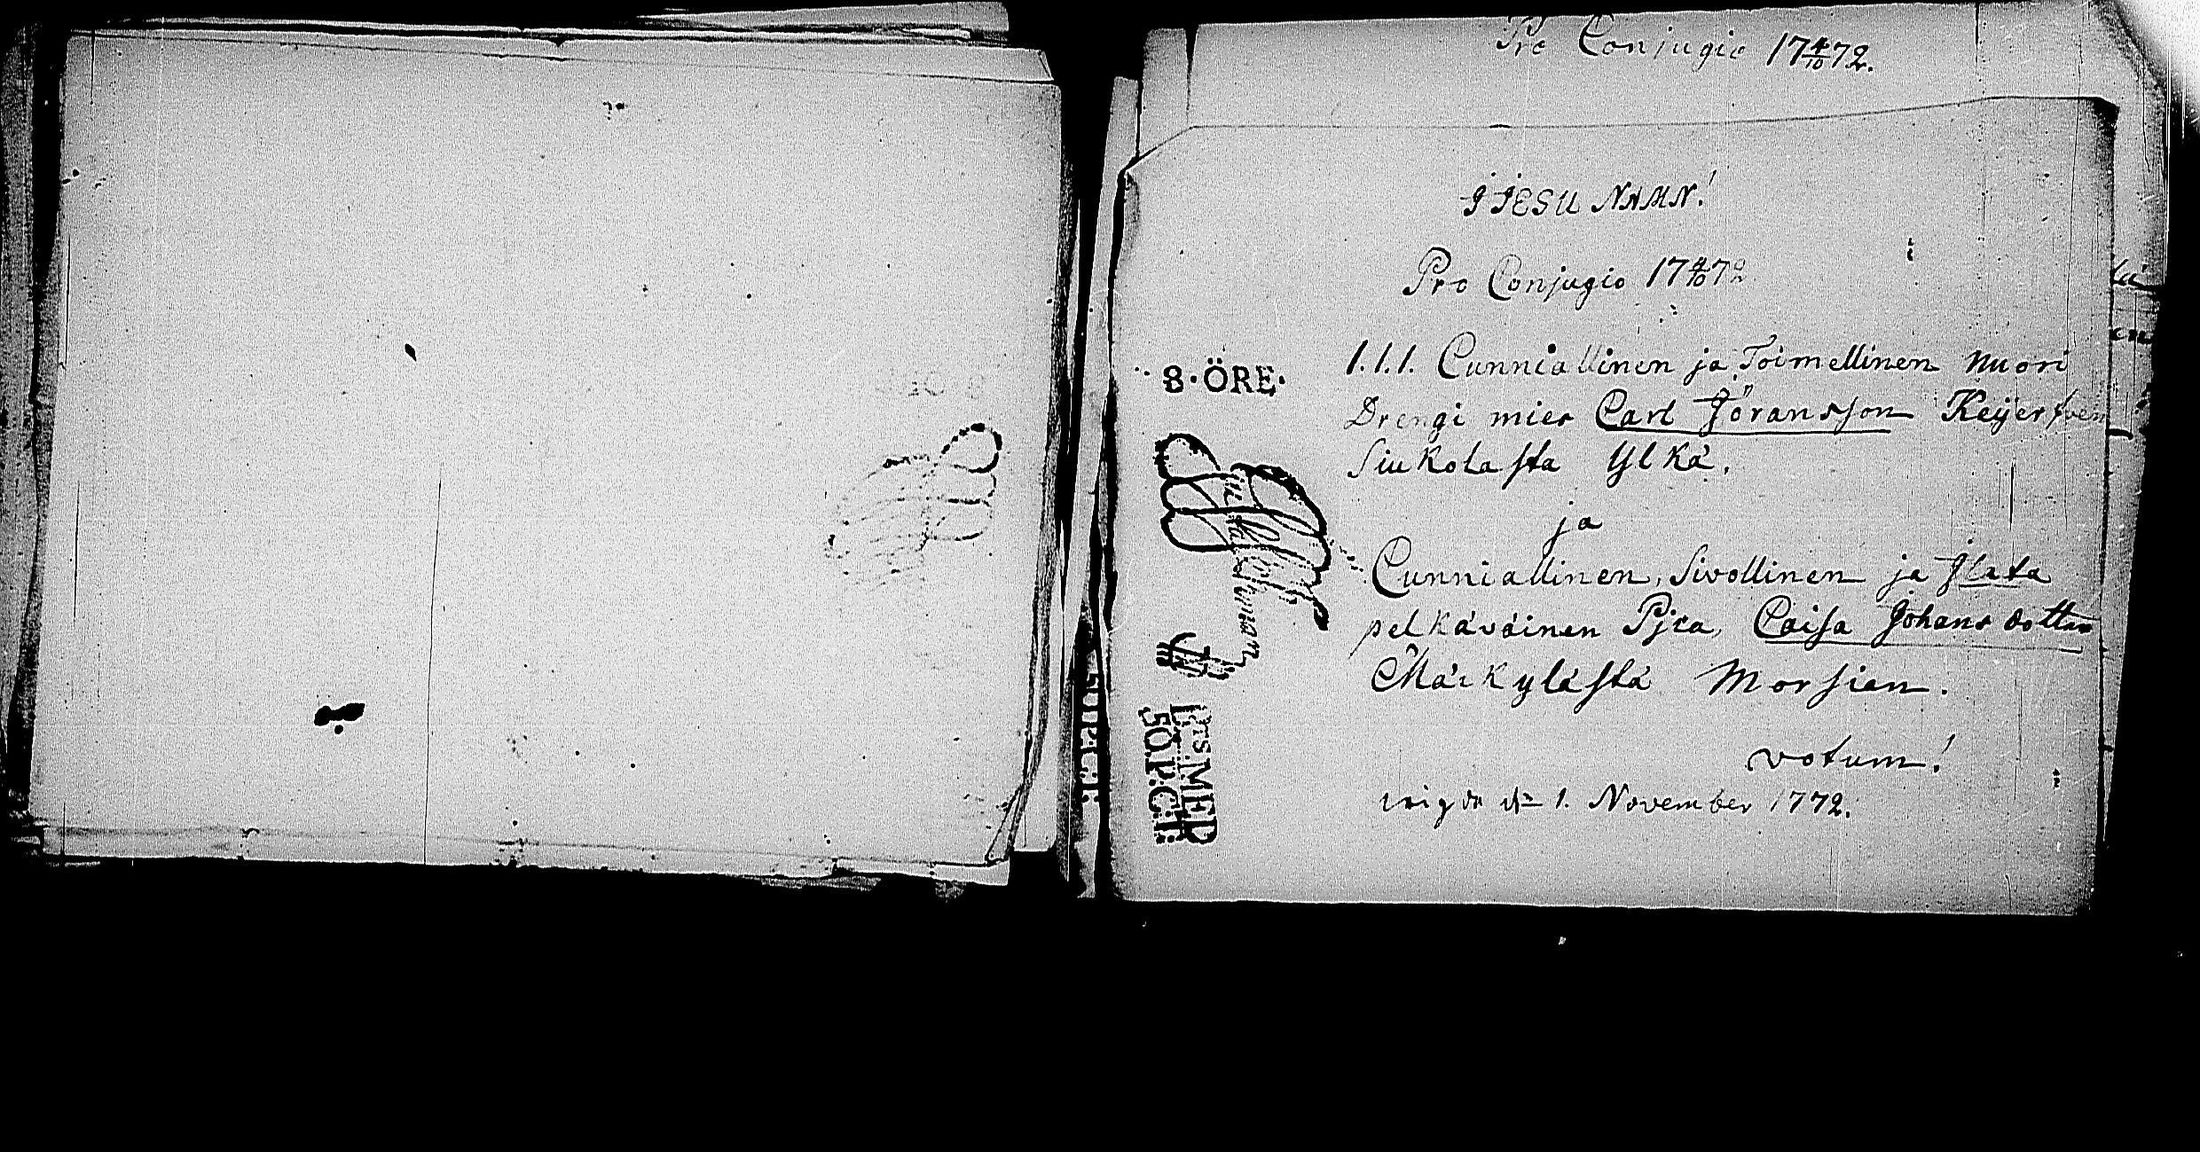 Pro Conjugio 17 4/10 72.
J JESU NAMN!
Pro Conjugio 17 4/10 72
8·ÖRE·
1.1.1. Cunniallinen ja Toimellinen Nuori
Drengi mies Carl Jöransson Keijer
Siukolasta Ylkä.
ja
Cunniallinen, Sivollinen ja
pelkäväinen Pjca, Caisa Johans dotter
Märkylästä Morsian.
votum!
wigde d. 1. November 1772.